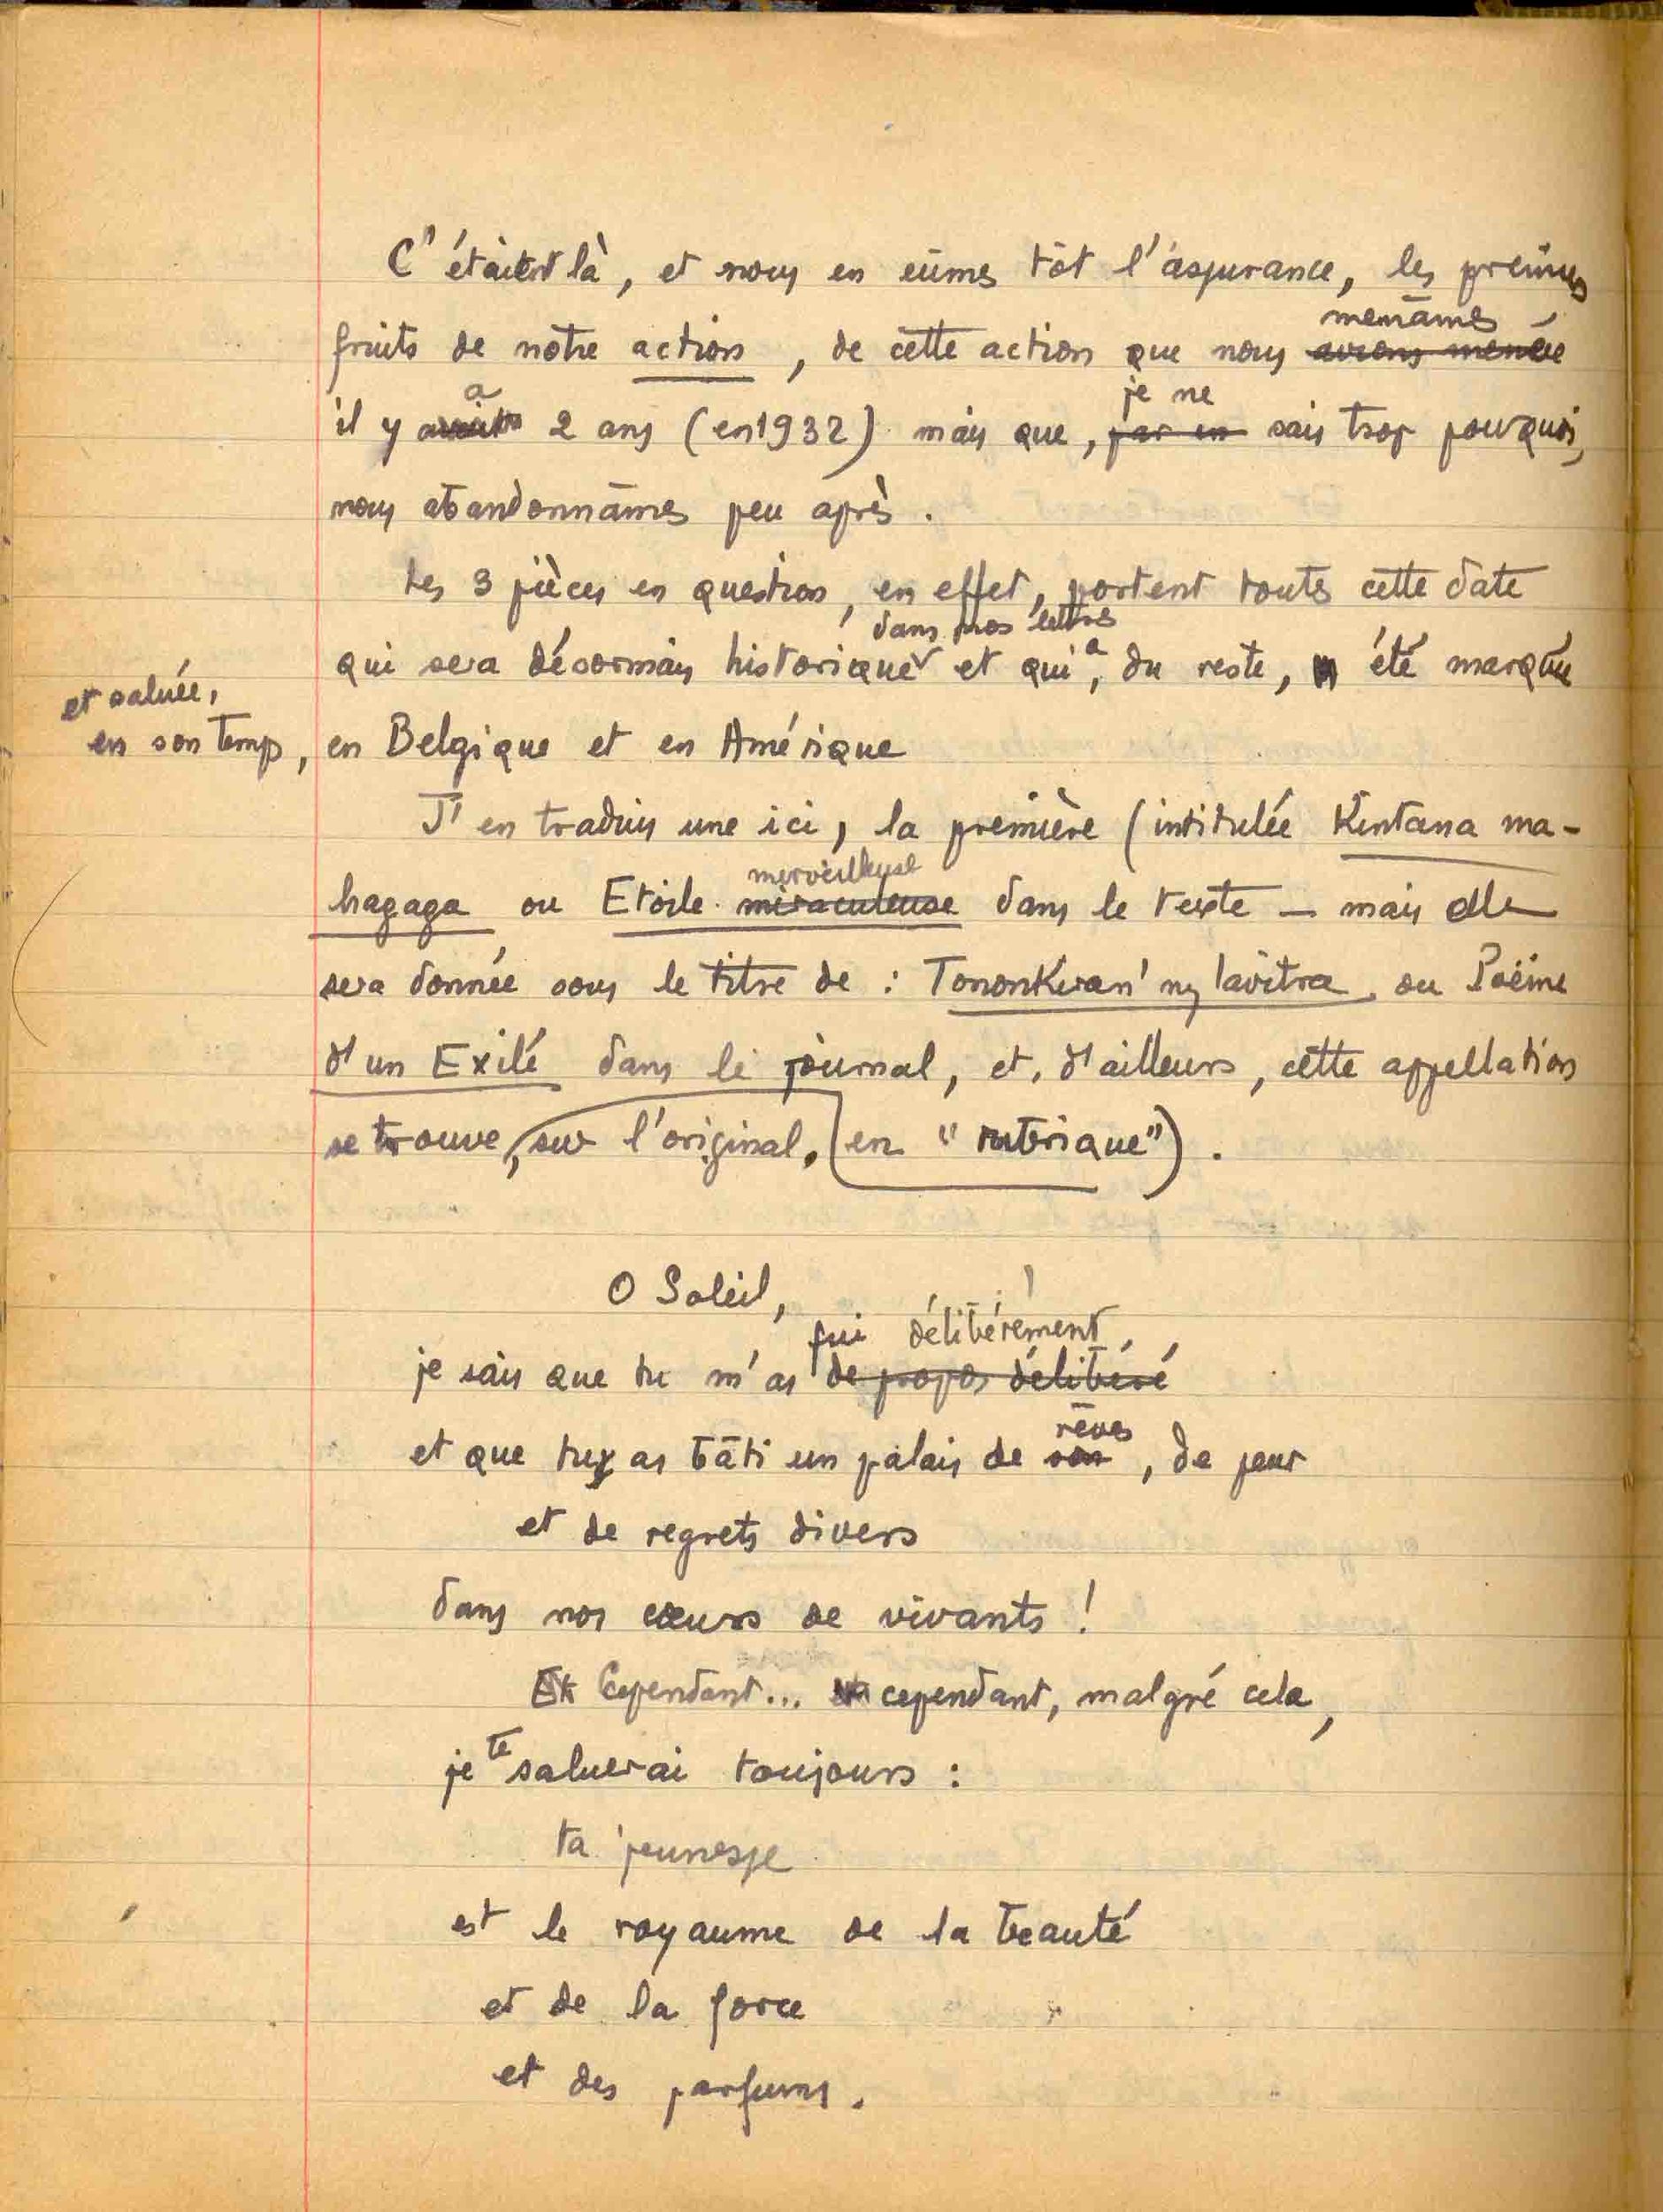 C'étaient là, et nous en eûmes tôt l'assurance, les premiers
menâmes
fruits de notre action, de cette action que nous avions menée
a je ne
il y avait 2 ans (en 1932) mais que, par un sais trop pourquoi,
nous abandonnâmes peu après.
Les 3 pièces en question, en effet, portent toutes cette date
dans nos lettres
qui sera désormais historique et qui a, du reste, été marquée
et saluée,
en son temps, en Belgique et en Amérique
J'en traduis une ici, la première (intitulée Kintana ma-
merveilleuse
hagaga ou Etoile miraculeuse dans le texte — mais elle
sera donnée sous le titre de : Tononkiran' ny lavitra ou Poème
d'un Exilé dans le journal, et, d'ailleurs, cette appellation
se trouve, sur l'original, en "rubrique").
O Soleil,
fui délibérément,
je sais que tu m'as de propos délibéré
rêves
et que tu y as bâti un palais de son, de peur
et de regrets divers
dans nos cœurs de vivants !
Et Cependant... cependant, malgré cela,
je te saluerai toujours :
ta jeunesse
est le royaume de la beauté
et de la force
et des parfums.